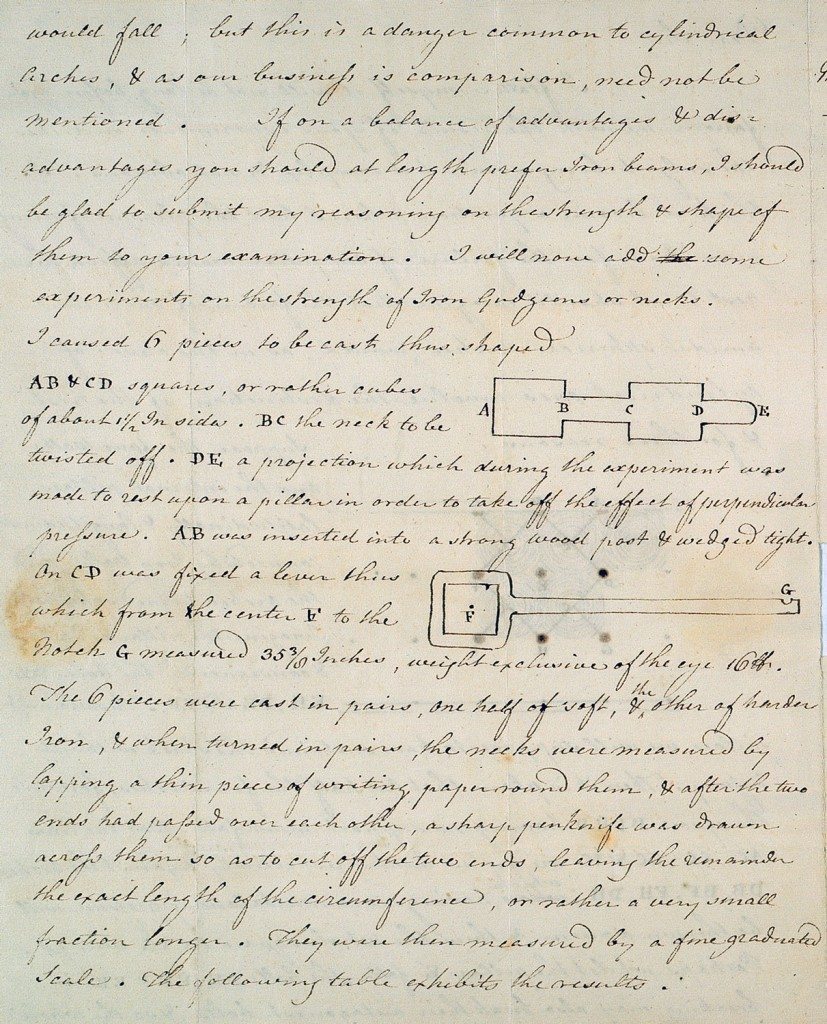 would fall ; but this is a danger common to cylindrical
Arches, & as our business is comparison, need not be
mentioned . If on a balance of advantages & dis=
advantages you should at length prefer Iron beams, I should
be glad to submit my reasoning on the strength & shape of
them to your examination . I will now add the some
experiments on the strength of Iron Gudgeons or necks .
I caused 6 pieces to be cast thus shaped
AB & CD squares, or rather cubes
of about 1½ In side . BC the neck to be
A B C D E
twisted off . DE a projection which during the experiment was
made to rest upon a pillar in order to take off the effect of perpendicular
pressure . AB was inserted into a strong wood post & wedged tight .
On CD was fixed a lever thus
which from the center F to the
F G
Notch G measured 35⅜ Inches, weight exclusive of the eye 16 lb.
The 6 pieces were cast in pairs, one half of soft, & the other of harder
Iron, & when turned in pairs, the necks were measured by
lapping a thin piece of writing paper round them, & after the two
ends had passed over each other, a sharp penknife was drawn
across them so as to cut off the two ends, leaving the remainder
the exact length of the circumference, or rather a very small
fraction longer . They were then measured by a fine graduated
Scale . The following table exhibits the results .